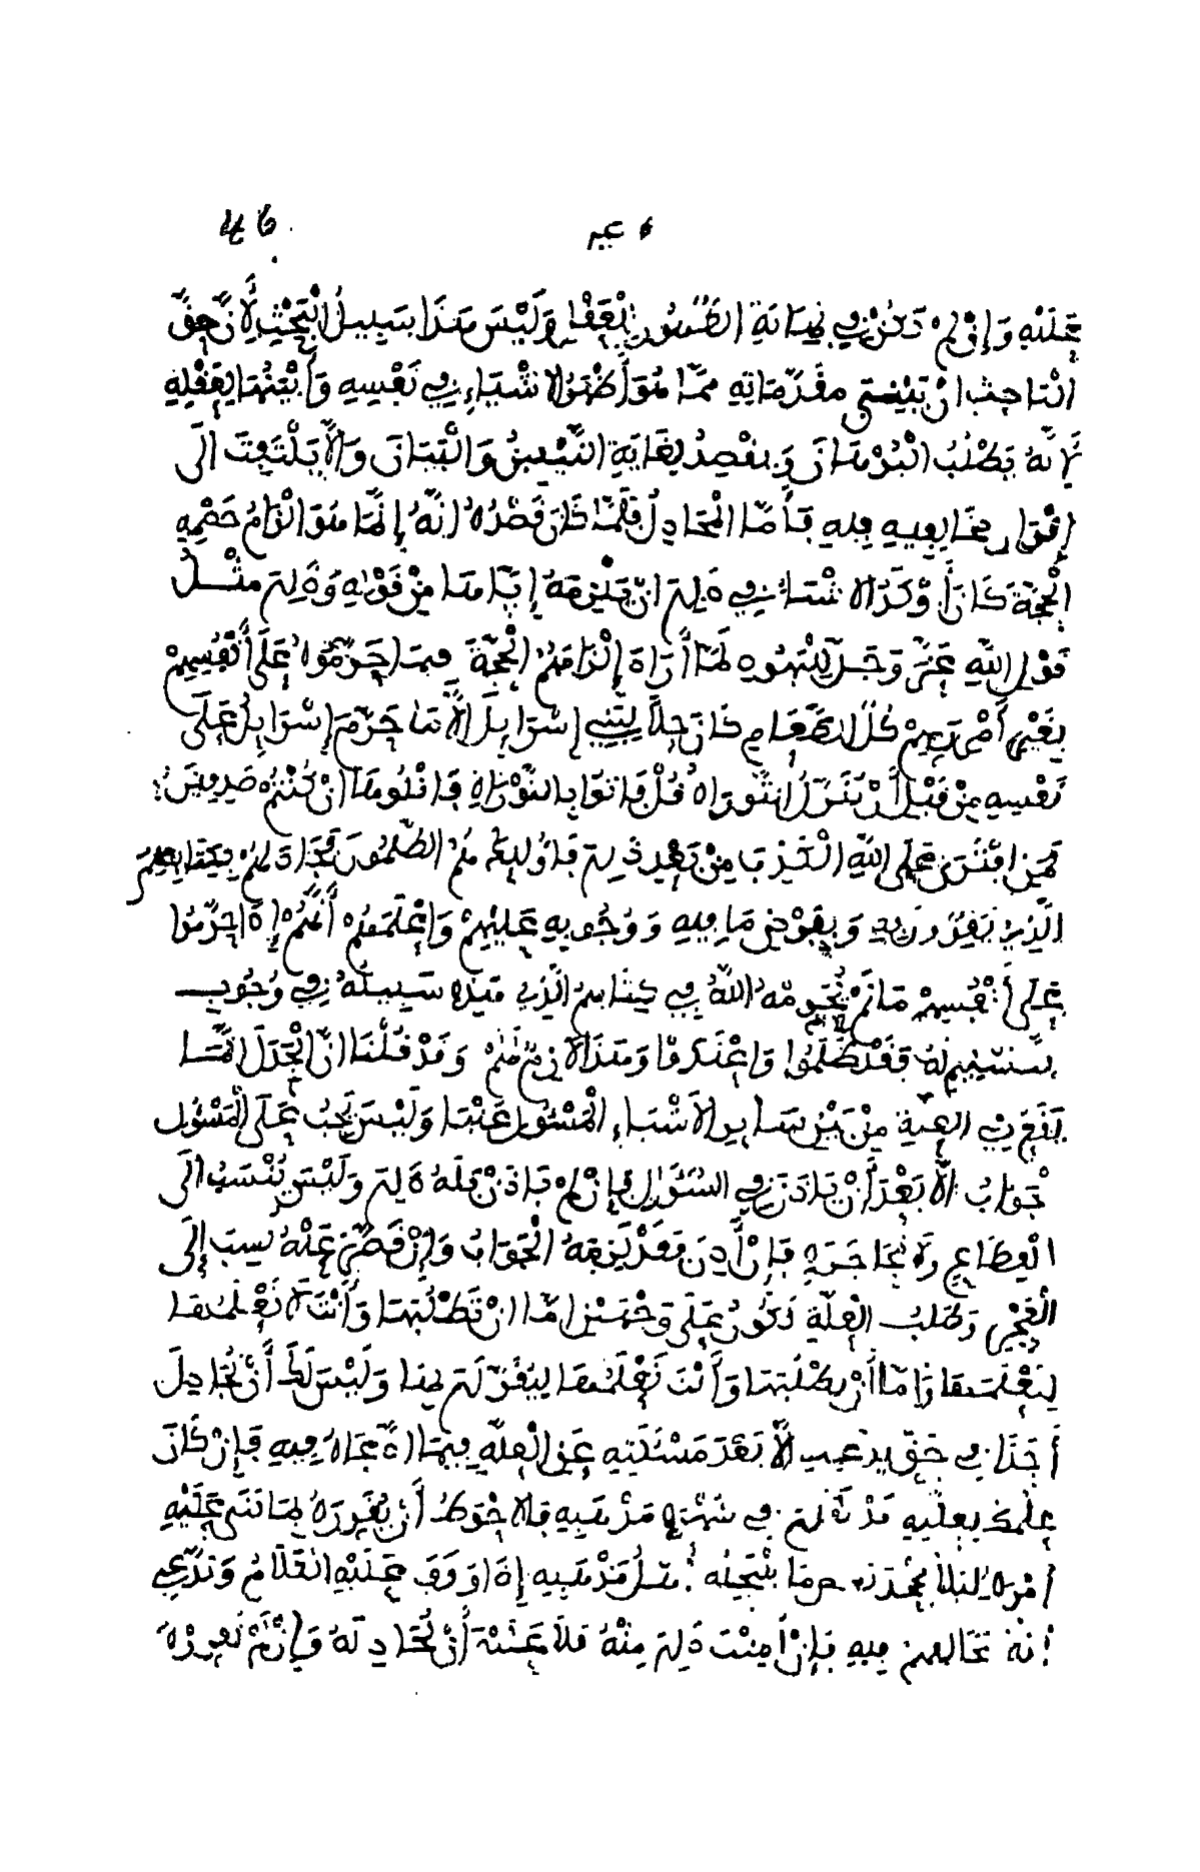 عليه وإن لم تكن في نهاية الظهور للعقل وليس هذا سبيل البحث لأن حق
الباحث أن يبني مقدماته مما هو أظهر الأشياء في نفسه وأبينها لعقله
لأنه يطلب البرهان ويقصد لغاية التبيين والبيان وألا يلتفت إلى
إقرار مخالفيه فيه فأما المجادل فلما كان قصده إنه إنما هو إلزام خصمه
الحجة كان أوكد الأشياء في ذلك أن يلزمه إياها من قوله وذلك مثل
قول الله عز وجل لليهود لما أراد إلزامهم الحجة فيما حرموا على أنفسهم
بغير أمر ربهم كل الطعام كان حلا لبني إسرائيل إلا ما حرم إسرائيل على
نفسه من قبل أن تنزل التوراة قل فاتوا بالتوراة فاتلوها إن كنتم صدقين
فمن افترى على الله الكذب من بعد ذلك فأولئك هم الظلمون فجادلهم بكتابهم
الذي يقرون به وبفرض ما فيه ووجوبه عليهم وأعلمهم أنهم إذا حرموا
على أنفسهم ما لم يحرمه الله في كتابهم الذي هذه سبيله في وجوب
تسليمهم له فقد ظلموا واعتدوا وهذا لازم لهم وقد قلنا إن الجدل إنما
يقع في العلة من بين سائر الأشياء المسئول عنها وليس يجب على المسئول
الجواب إلا بعد أن يأذن في السؤال فإن لم يأذن فله ذلك وليس ينسب إلى
انقطاع ولا محاجزة فإن أذن فقد لزمه الجواب وإن قصر عنه نسب إلى
العجز وطلب العلة تكون على وجهين إما أن تطلبها وأنت لا تعلمها
لتعلمها وإما أن تطلبها وأنت تعلمها ليقر لك بها وليس لك أن تجادل
أحدا في حق يدعيه إلا بعد مسئلته عن العلة فيما ادعاه فيه فإن كان
علمك بعلته قد في شهرة مذهبه فالأحوط أن تقرره بما تبني عليه
أمره لئلا يجحد ما ينتحله أهل مذهبه إذا وقف عليه الكلام ويدعي
أنه مخالفهم فيه فإن أمنت ذلك منه فلا عليك أن تجادله وإن لم تقرره